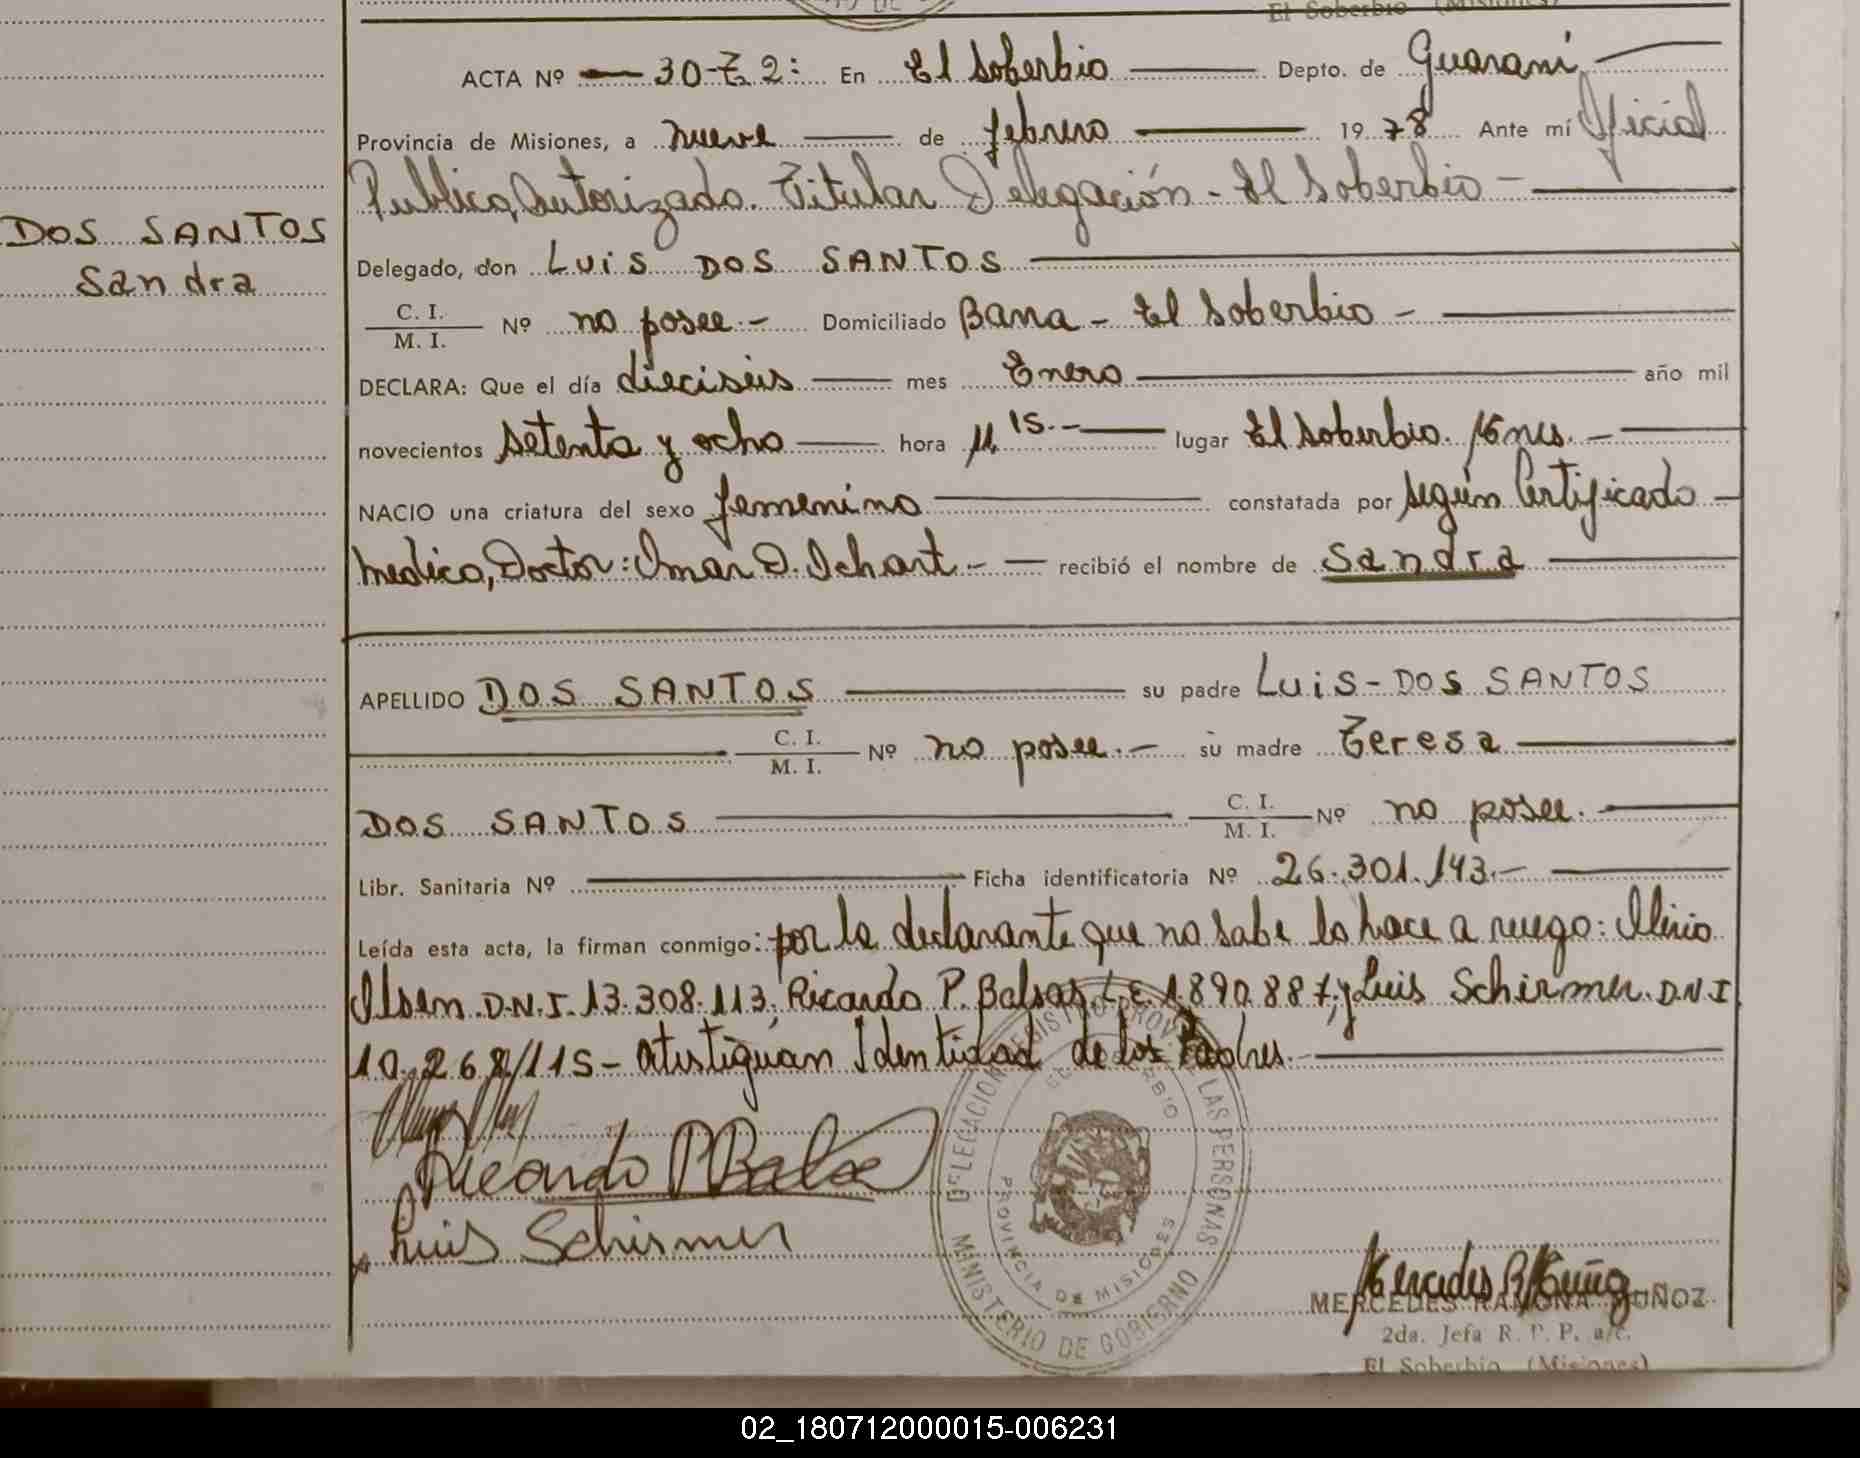 El Soberbio (Misiones)
ACTA Nº 30-T. 2: En El Soberbio Depto. de Guaraní
Provincia de Misiones, a nueve de febrero 1978 Ante mí Oficial
Publico, Autorizado. Titular Delegación - El Soberbio -
DOS SANTOS
Sandra
Delegado, don LUiS DOS SANTOS
C. I.
M. I.
Nº no posee.- Domiciliado Bana - El Soberbio -
DECLARA: Que el día dieciseis mes Enero año mil
novecientos setenta y ocho hora 11,15.- lugar El Soberbio.
NACIO una criatura del sexo femenino constatada por según Certificado
medico, Doctor: Omar D. Ichart.- recibió el nombre de Sandra
APELLIDO DOS SANTOS su padre LUiS-DOS SANTOS
C. I.
M. I.
Nº no posee.- su madre Teresa
DOS SANTOS C. I.
M. I.
Nº no posee.
Libr. Sanitaria Nº Ficha identificatoria Nº 26.301.143.-
Leída esta acta, la firman conmigo: por la declarante que no sabe lo hace a ruego:
Olsen. D.N.I. 13.308.113, Ricardo P. Balsas, L.E. 1.890.887, y Luis Schirmer. D.N.I
10.268.115- atestiguan Identidad de los Padres.-
Ricardo P Balsa
Luis Schirmer
DELEGACION REGISTRO PROV. DE LAS PERSONAS
EL SOBERBIO
PROVINCIA DE MISIONES
MINISTERIO DE GOBIERNO
Mercedes R Muñoz
MERCEDES RAMONA MUÑOZ
2da. Jefa R. P. P. a/c.
El Soberbio (Misiones)
02_180712000015-006231